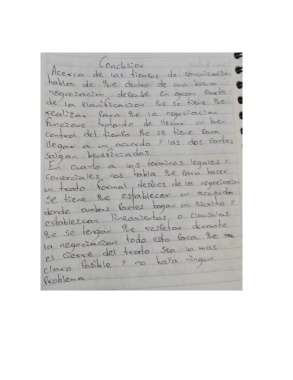 Conclusion
Acerca de los tiempos de comunicación
habla de que dentro de una buena
negociacion, depende en gran parte
de la planificacion que se tiene que
realizar para que la negociacion
funcione tratando de llevar un buen
control del tiempo que se tiene para
llegar a un acuerdo y las dos partes
salgan beneficiadas.
En cuanto a los terminos legales y
comerciales, nos habla que para hacer
un trato formal despues de la negociacion
se tiene que establecer un acuerdo
donde ambas partes hagan un escrito y
establezcan lineamientos o clausulas
que se tengan que respetar durante
la negociacion todo esto para que
el cierre del trato sea lo mas
claro posible y no haya ningun
problema.